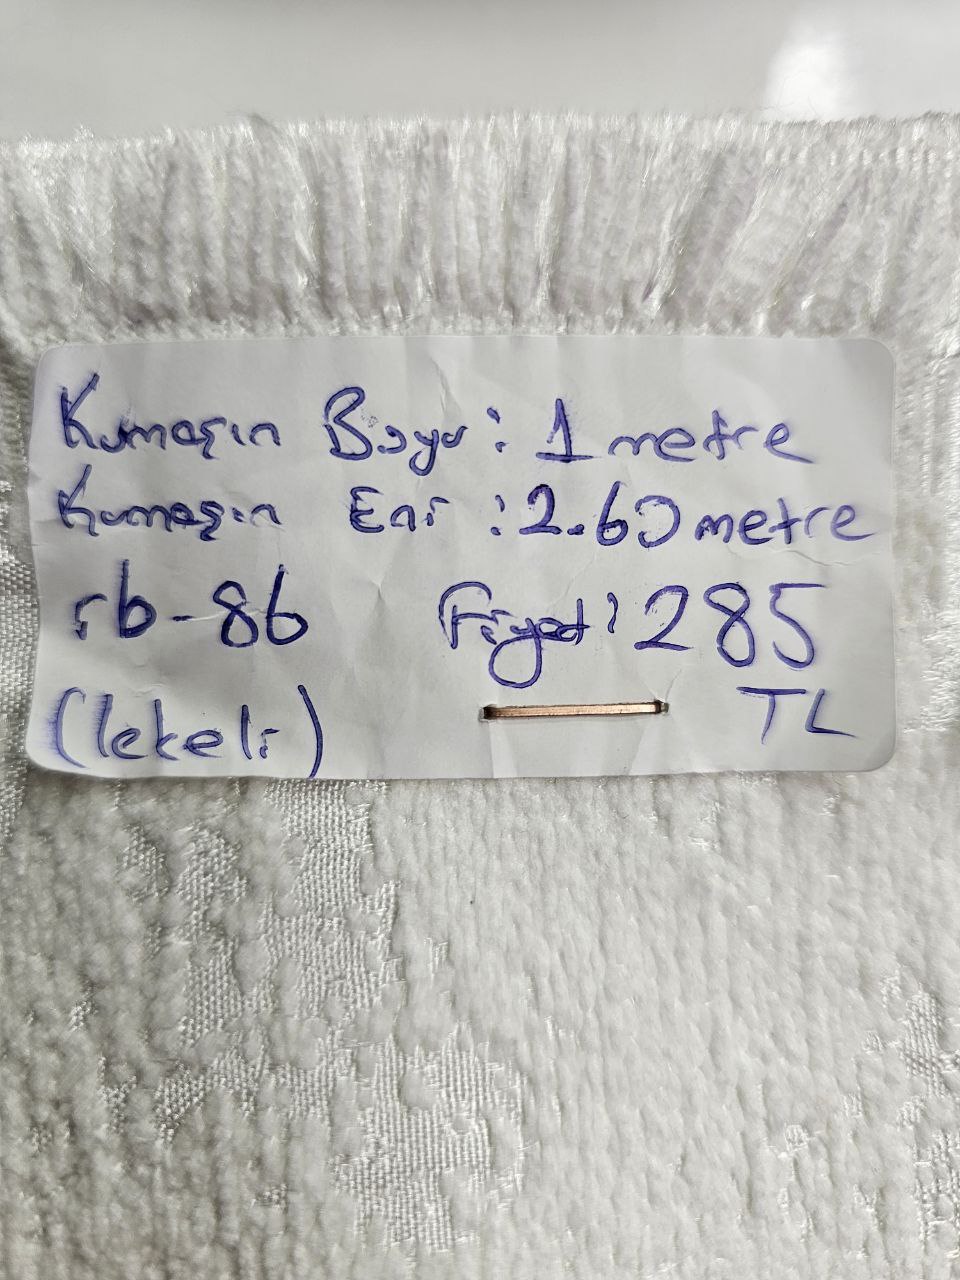 Kumaşın Boyu: 1 metre
Kumaşın Eni: 2.60 metre
rb-86 Fiyat: 285
(lekeli) TL